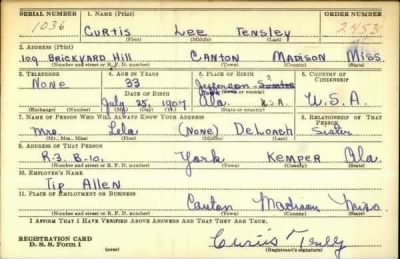 SERIAL NUMBER 1. NAME (Print) ORDER NUMBER
1036 CURTIS Lee Tensley 2453
(First) (Middle) (Last)
2. ADDRESS (Print)
109 Brickyard Hill CANTON MADISON Miss.
(Number and street or R. F. D. number) (Town) (County) (State)
3. TELEPHONE 4. AGE IN YEARS 5. PLACE OF BIRTH 6. COUNTRY OF CITIZENSHIP
None 33 Jefferson
DATE OF BIRTH
July 25, 1907 Ala. U.S.A. U.S.A.
(Exchange) (Number) (Mo.) (Day) (Yr.) (State or country)
7. NAME OF PERSON WHO WILL ALWAYS KNOW YOUR ADDRESS 8. RELATIONSHIP OF THAT PERSON
Mrs Lela (None) DeLoach Sister
(Mr., Mrs., Miss) (First) (Middle) (Last)
9. ADDRESS OF THAT PERSON
R-3. B-10. York KEMPER Ala.
(Number and street or R. F. D. number) (Town) (County) (State)
10. EMPLOYER'S NAME
Tip Allen
11. PLACE OF EMPLOYMENT OR BUSINESS
Canton Madison Miss.
(Number and street or R. F. D. number) (Town) (County) (State)
I AFFIRM THAT I HAVE VERIFIED ABOVE ANSWERS AND THAT THEY ARE TRUE.
REGISTRATION CARD
D. S. S. Form 1 (over) Curtis Tensly
(Registrant's signature)